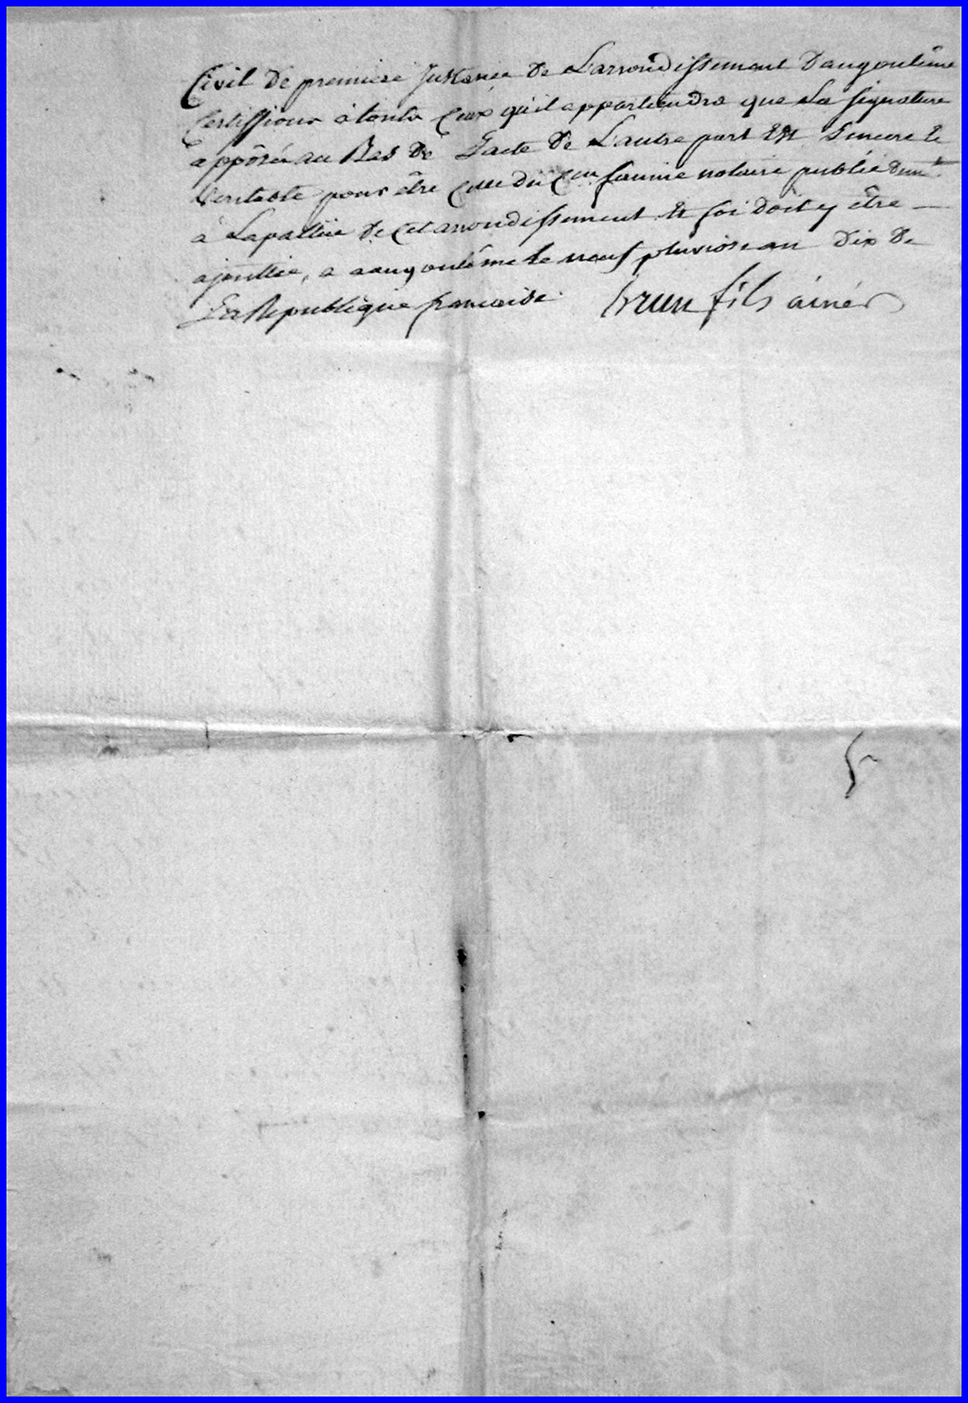 Civil de premiere Instance de Larrondissement Dangoulême
Certiffions a touts Ceux qu'il appartiendra que La signature
appôsée au Bas de Lacte de Lautre part Est Sincere &
Veritable pour être Celle du Cen faunie notaire publie
à Lapallue de Cet arrondissement & foi doit y être
ajoutée, a angoulême le neuf pluviose an dix de
La Republique francaise. brun fils ainé